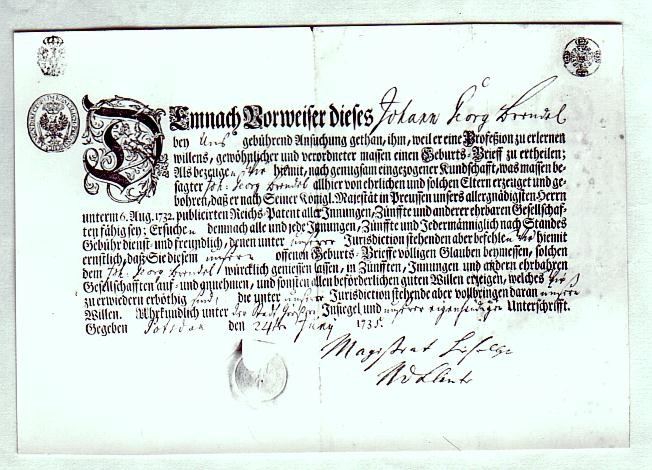 DEmnach Vorweiser dieses Johann Georg Brendel
bey Uns gebührend Ansuchung gethan, ihm, weil er eine Profeßion zu erlernen
willens, gewöhnlicher und verordneter massen einen Geburts-Brieff zu ertheilen;
Als bezeugen wir hiemit, nach genugsam eingezogener Kundschafft, was massen besagter
Joh. Georg Brendel allhier von ehrlichen und solchen Eltern erzeuget und gebohren,
daß er nach Seiner Königl. Majestät in Preussen unsers allergnädigsten Herrn
unterm 6. Aug. 1732. publicirten Reichs-Patent aller Innungen, Zünffte und anderer ehrbaren Gesellschafften
fähig sey; Ersuchen demnach alle und jede Innungen, Zünffte und Jedermänniglich nach Standes
Gebühr dienst- und freundlich, denen unter unserer Jurisdiction stehenden aber befehlen wir hiemit
ernstlich, daß Sie diesem unserem offenen Geburts-Brieffe völligen Glauben beymessen, solchen
dem Joh. Georg Brendel würcklich geniessen lassen, in Zünfften, Innungen und andern ehrbahren
Gesellschafften auf- und annehmen, und sonsten allen beförderlichen guten Willen erzeigen, welches wir
zu erwiedern erböthig sind, die unter unserer Jurisdiction stehende aber vollbringen daran unsern
Willen. Uhrkundlich unter der Stadt Insiegel und unserer eigenhändigen Unterschrifft.
Gegeben Potsdam den 24ten Juny 1735.
Magistrat